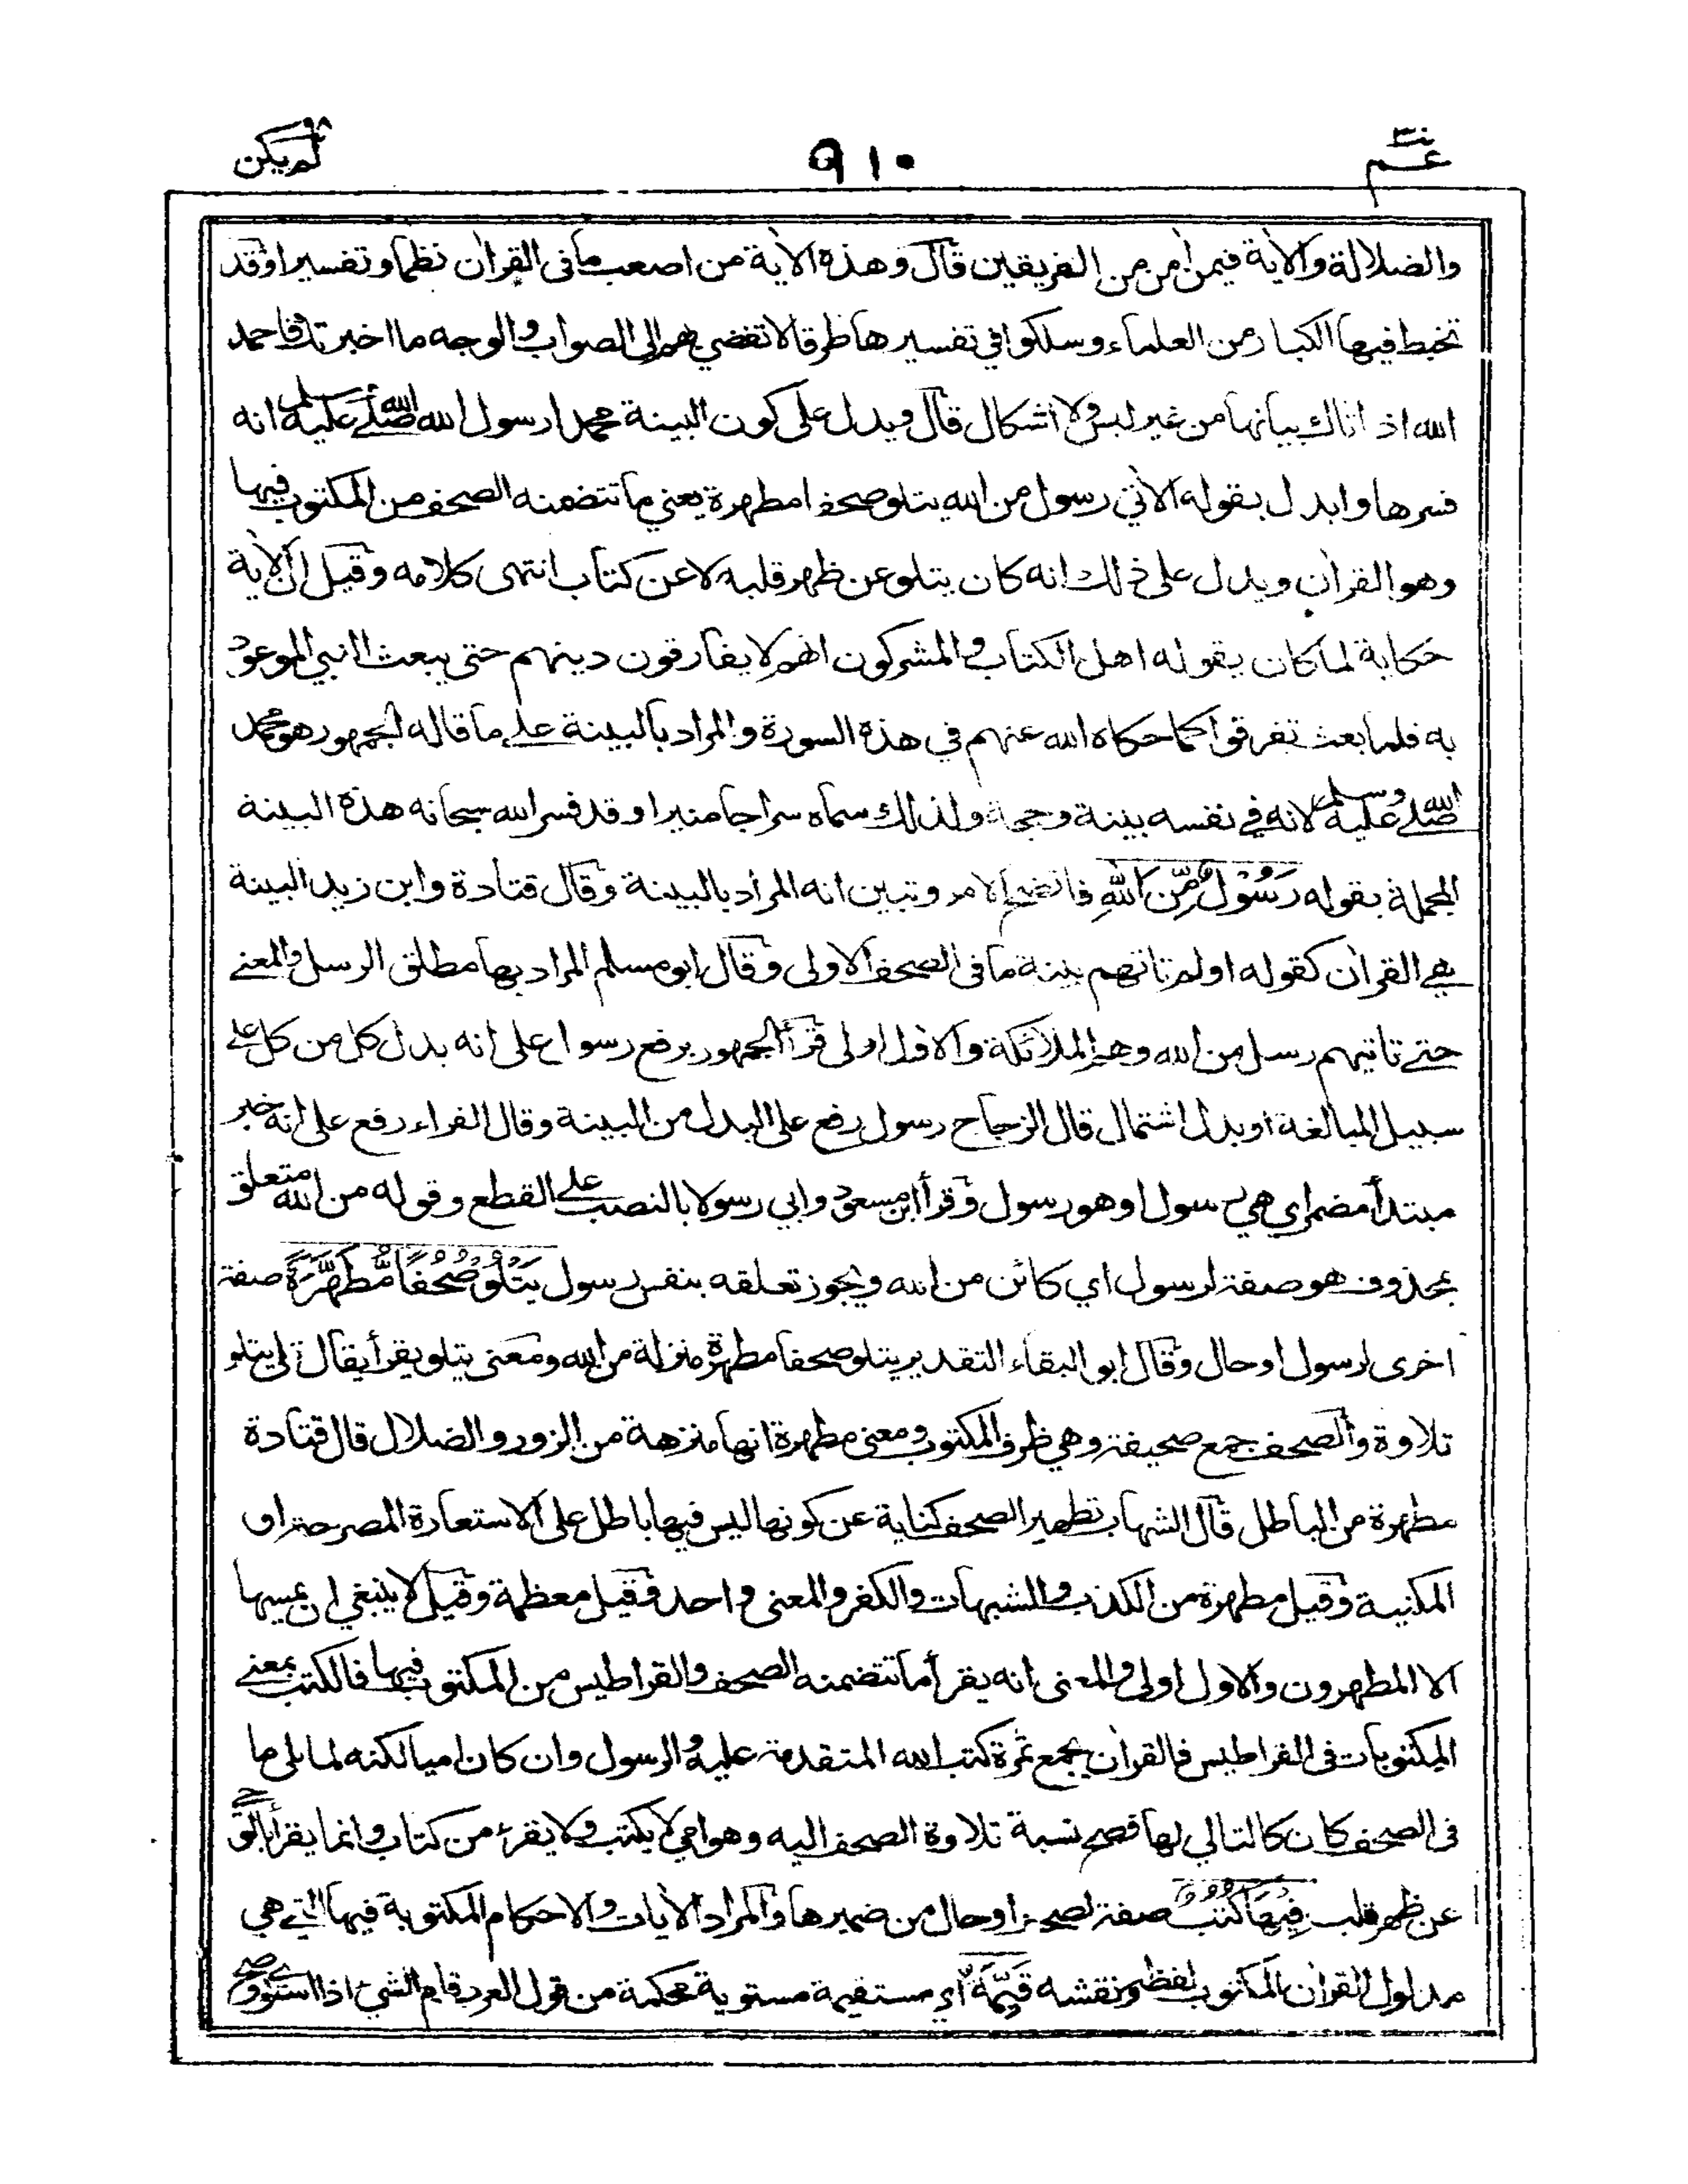 عم ٣٠
٩١٠
لم يكن ٩٨
والضلالة والاية فيمن امن من الفريقين قال وهذه الاية من اصعب ما فى القران نظما وتفسيرا وقد
تخبط فيها الكبار من العلماء وسلكوا في تفسيرها طرقا لا تفضي بهم الى الصواب والوجه ما اخبرتك فاحمد
الله اذ اتاك بيانها من غير لبس ولا اشكال قال ويدل على كون البينة محمدا رسول الله صلى الله عليه وسلم انه
فسرها وابدل بقوله الاتي رسول من الله يتلو صحفا مطهرة يعني ما تتضمنه الصحف من المكتوب فيها
وهو القران ويدل على ذلك انه كان يتلو عن ظهر قلبه لا عن كتاب انتهى كلامه وقيل ان الاية
حكاية لما كان يقوله اهل الكتاب والمشركون انهم لا يفارقون دينهم حتى يبعث النبي الموعود
به فلما بعث تفرقوا كما حكاه الله عنهم في هذه السورة والمراد بالبينة على ما قاله الجمهور هو محمد
صلى الله عليه وسلم لانه في نفسه بينة وحجة ولذلك سماه سراجا منيرا وقد فسر الله سبحانه هذه البينة
المجملة بقوله رَسُوْلٌ مِّنَ اللهِ فاتضح الامر وتبين انه المراد بالبينة وقال قتادة وابن زيد البينة
هي القران كقوله اولم تاتهم بينة ما فى الصحف الاولى وقال ابو مسلم المراد بها مطلق الرسل والمعنى
حتى تاتيهم رسل من الله وهم الملائكة والاول اولى قرأ الجمهور برفع رسول على انه بدل كل من كل على
سبيل المبالغة او بدل اشتمال قال الزجاج رسول رفع على البدل من البينة وقال الفراء رفع على انه خبر
مبتدأ مضمر اي هي رسول او هو رسول وقرأ ابن مسعود وابي رسولا بالنصب على القطع وقوله من الله متعلق
بمحذوف هو صفة لرسول اي كائن من الله ويجوز تعلقه بنفس رسول يَتْلُوْ صُحُفًا مُّطَهَّرَةً صفة
اخرى لرسول او حال وقال ابو البقاء التقدير يتلو صحفا مطهرة منزلة من الله ومعنى يتلو يقرأ يقال تلى يتلو
تلاوة والصحف جمع صحيفة وهي ظرف المكتوب ومعنى مطهرة انها منزهة من الزور والضلال قال قتادة
مطهرة من الباطل قال الشهاب تطهير الصحف كناية عن كونها ليس فيها باطل على الاستعارة المصرحة او
المكنية وقيل مطهرة من الكذب والشبهات والكفر والمعنى واحد وقيل معظمة وقيل لا ينبغي ان يمسها
الا المطهرون والاول اولى والمعنى انه يقرأ ما تتضمنه الصحف والقراطيس من المكتوب فيها فالكتب بمعنى
المكتوبات فى القراطيس فالقران يجمع ثمرة كتب الله المتقدمة عليه والرسول وان كان اميا لكنه لما تلى ما
فى الصحف كان كالتالي لها فصح نسبة تلاوة الصحف اليه وهو امي لا يكتب ولا يقرء من كتاب وانما يقرأ بالوحي
عن ظهر قلب فِيْهَا كُتُبٌ صفة لصحف او حال من ضميرها والمراد الايات والاحكام المكتوبة فيها التي هي
مدلول القران المكتوب لفظه ونقشه قَيِّمَةٌ اي مستقيمة مستوية محكمة من قول العرب قام الشيء اذا استوى وصح